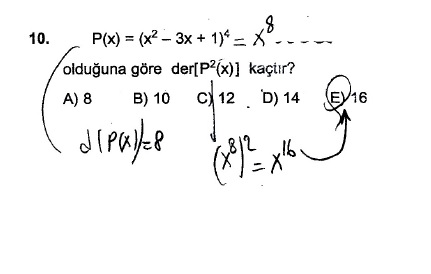 10. P(x) = (x² – 3x + 1)⁴ = x⁸ -----
olduğuna göre der[P²(x)] kaçtır?
A) 8 B) 10 C) 12 D) 14 E) 16
d[P(x)]=8
(x⁸)² = x¹⁶